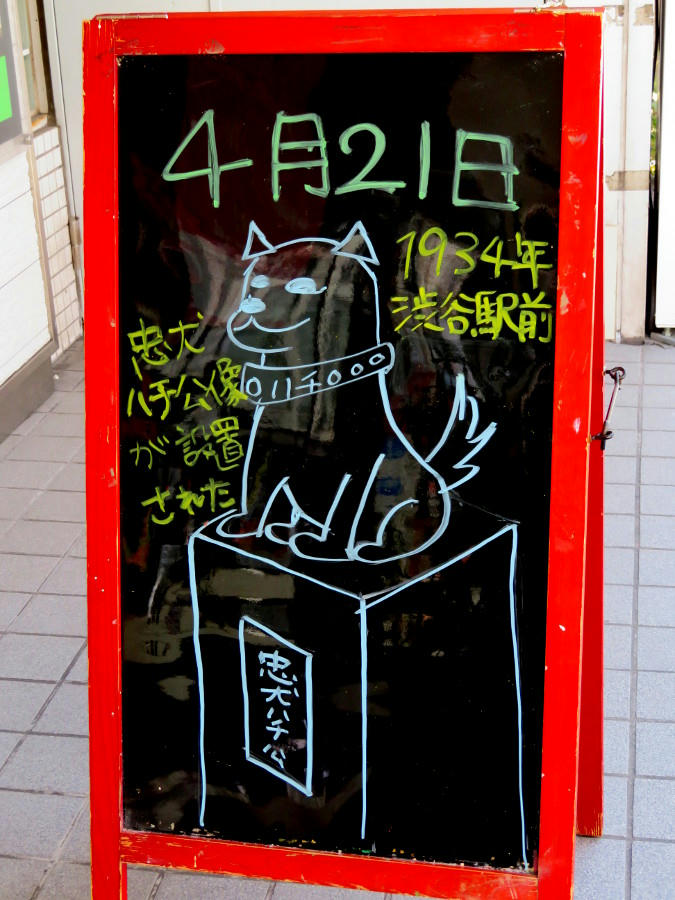 4月21日
1934年
渋谷駅前
忠犬
ハチ公像
が設置
された
ハチ
忠犬ハチ公